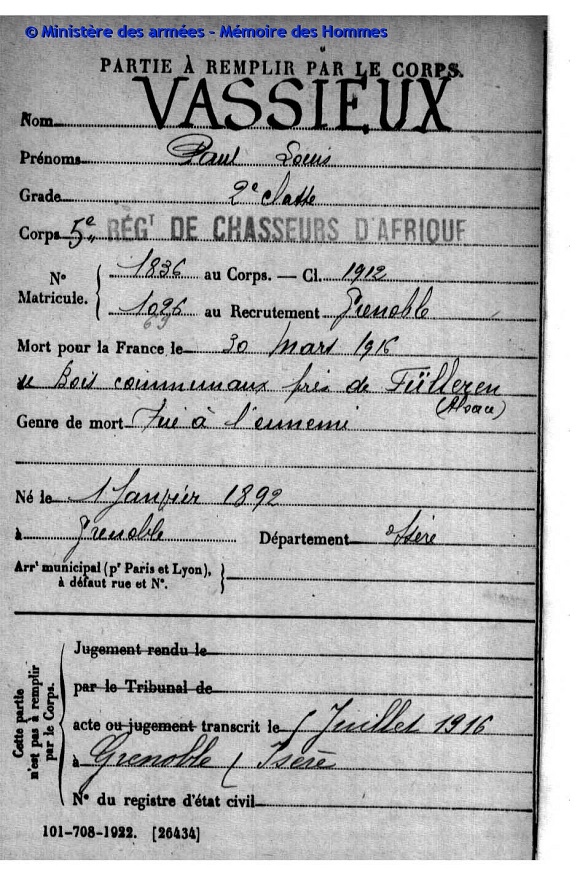 © Ministère des armées - Mémoire des Hommes
PARTIE À REMPLIR PAR LE CORPS.
Nom VASSIEUX
Prénoms Paul Louis
Grade 2e classe
Corps 5e RÉGT DE CHASSEURS D'AFRIQUE
No Matricule. { 1836 au Corps. — Cl. 1912
1026 au Recrutement Grenoble
Mort pour la France le 30 Mars 1916
Bois communaux près de Fülleren
(Alsace)
Genre de mort Tué à l'ennemi
Né le 1 Janvier 1892
à Grenoble Département Isère
Arrt municipal (pr Paris et Lyon), à défaut rue et No. }
Cette partie n'est pas à remplir par le Corps.
Jugement rendu le
par le Tribunal de
acte ou jugement transcrit le Juillet 1916
à Grenoble (Isère
No du registre d'état civil
101-708-1922. [26434]